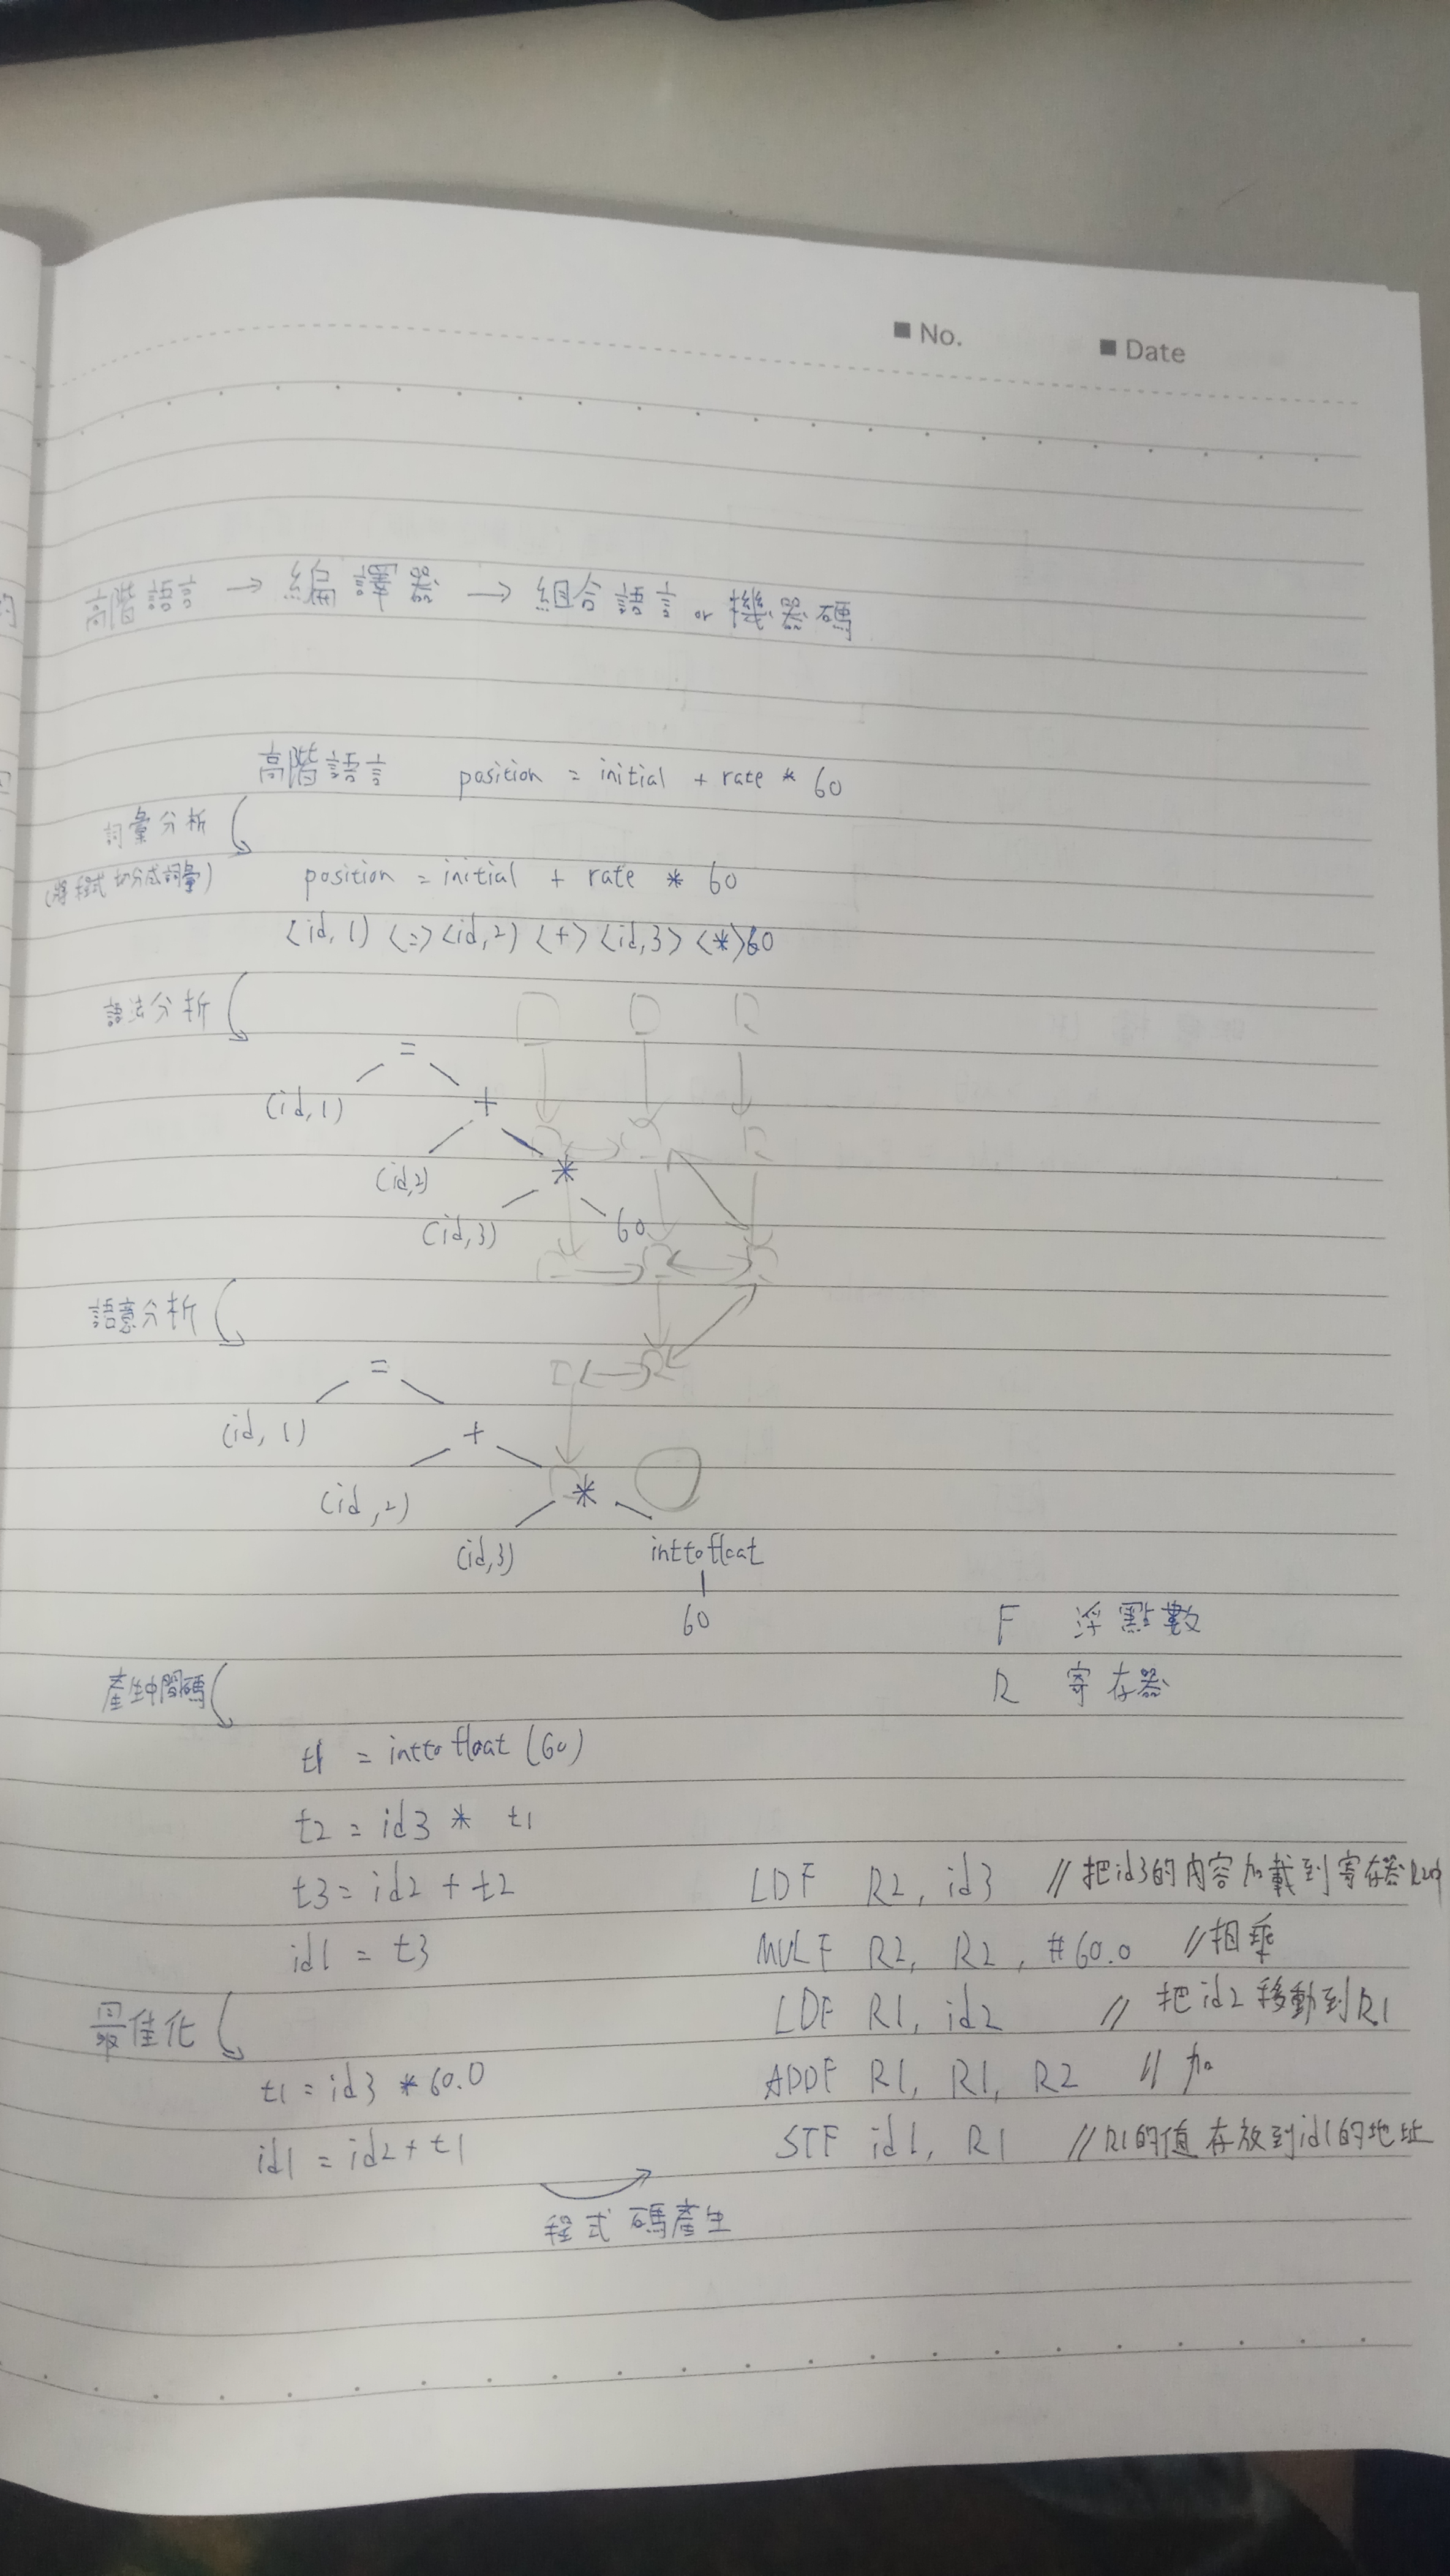 ■ No. ■ Date
高階語言 → 編譯器 → 組合語言 or 機器碼
高階語言 position = initial + rate * 60
詞彙分析
(將程式切分成詞彙) position = initial + rate * 60
<id, 1> <=> <id, 2> <+> <id, 3> <*> 60
語法分析
=
(id, 1) +
(id, 2) *
(id, 3) 60
語意分析
=
(id, 1) +
(id, 2) *
(id, 3) inttofloat
60
F 浮點數
R 寄存器
產生中間碼
t1 = inttofloat (60)
t2 = id3 * t1
t3 = id2 + t2
id1 = t3
最佳化
t1 = id3 * 60.0
id1 = id2 + t1
程式碼產生
LDF R2, id3 // 把id3的內容加載到寄存器R2中
MULF R2, R2, #60.0 // 相乘
LDF R1, id2 // 把id2移動到R1
ADDF R1, R1, R2 // 加
STF id1, R1 // R1的值存放到id1的地址